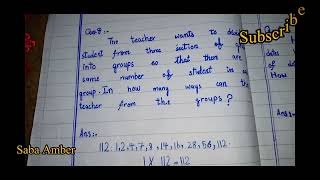 Ques 8 :-
The teacher wants to
student from three section of
into groups so that there are
same number of student in
group. In how many ways can the
teacher from the groups?
Ans:-
112 : 1,2,4,7,8,14,16,28,56,112.
1 X 112 = 112
Subscribe
Saba Amber